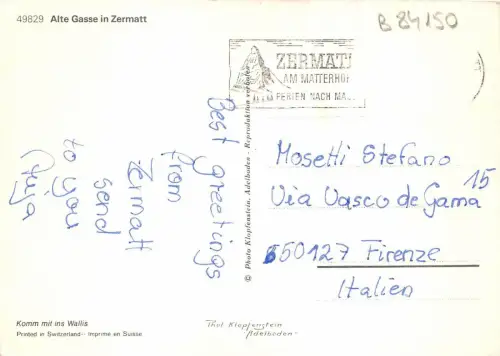 49829 Alte Gasse in Zermatt
B 84150
ZERMAT
AM MATTERHO
FERIEN NACH
Best greetings
from
Zermatt
send
to you
© Photo Klopfenstein, Adelboden - Reproduktion verboten
Mosetti Stefano
Via Vasco de Gama 15
50127 Firenze
Italien
Komm mit ins Wallis
Printed in Switzerland - Imprimé en Suisse
Phot Klopfenstein
Adelboden